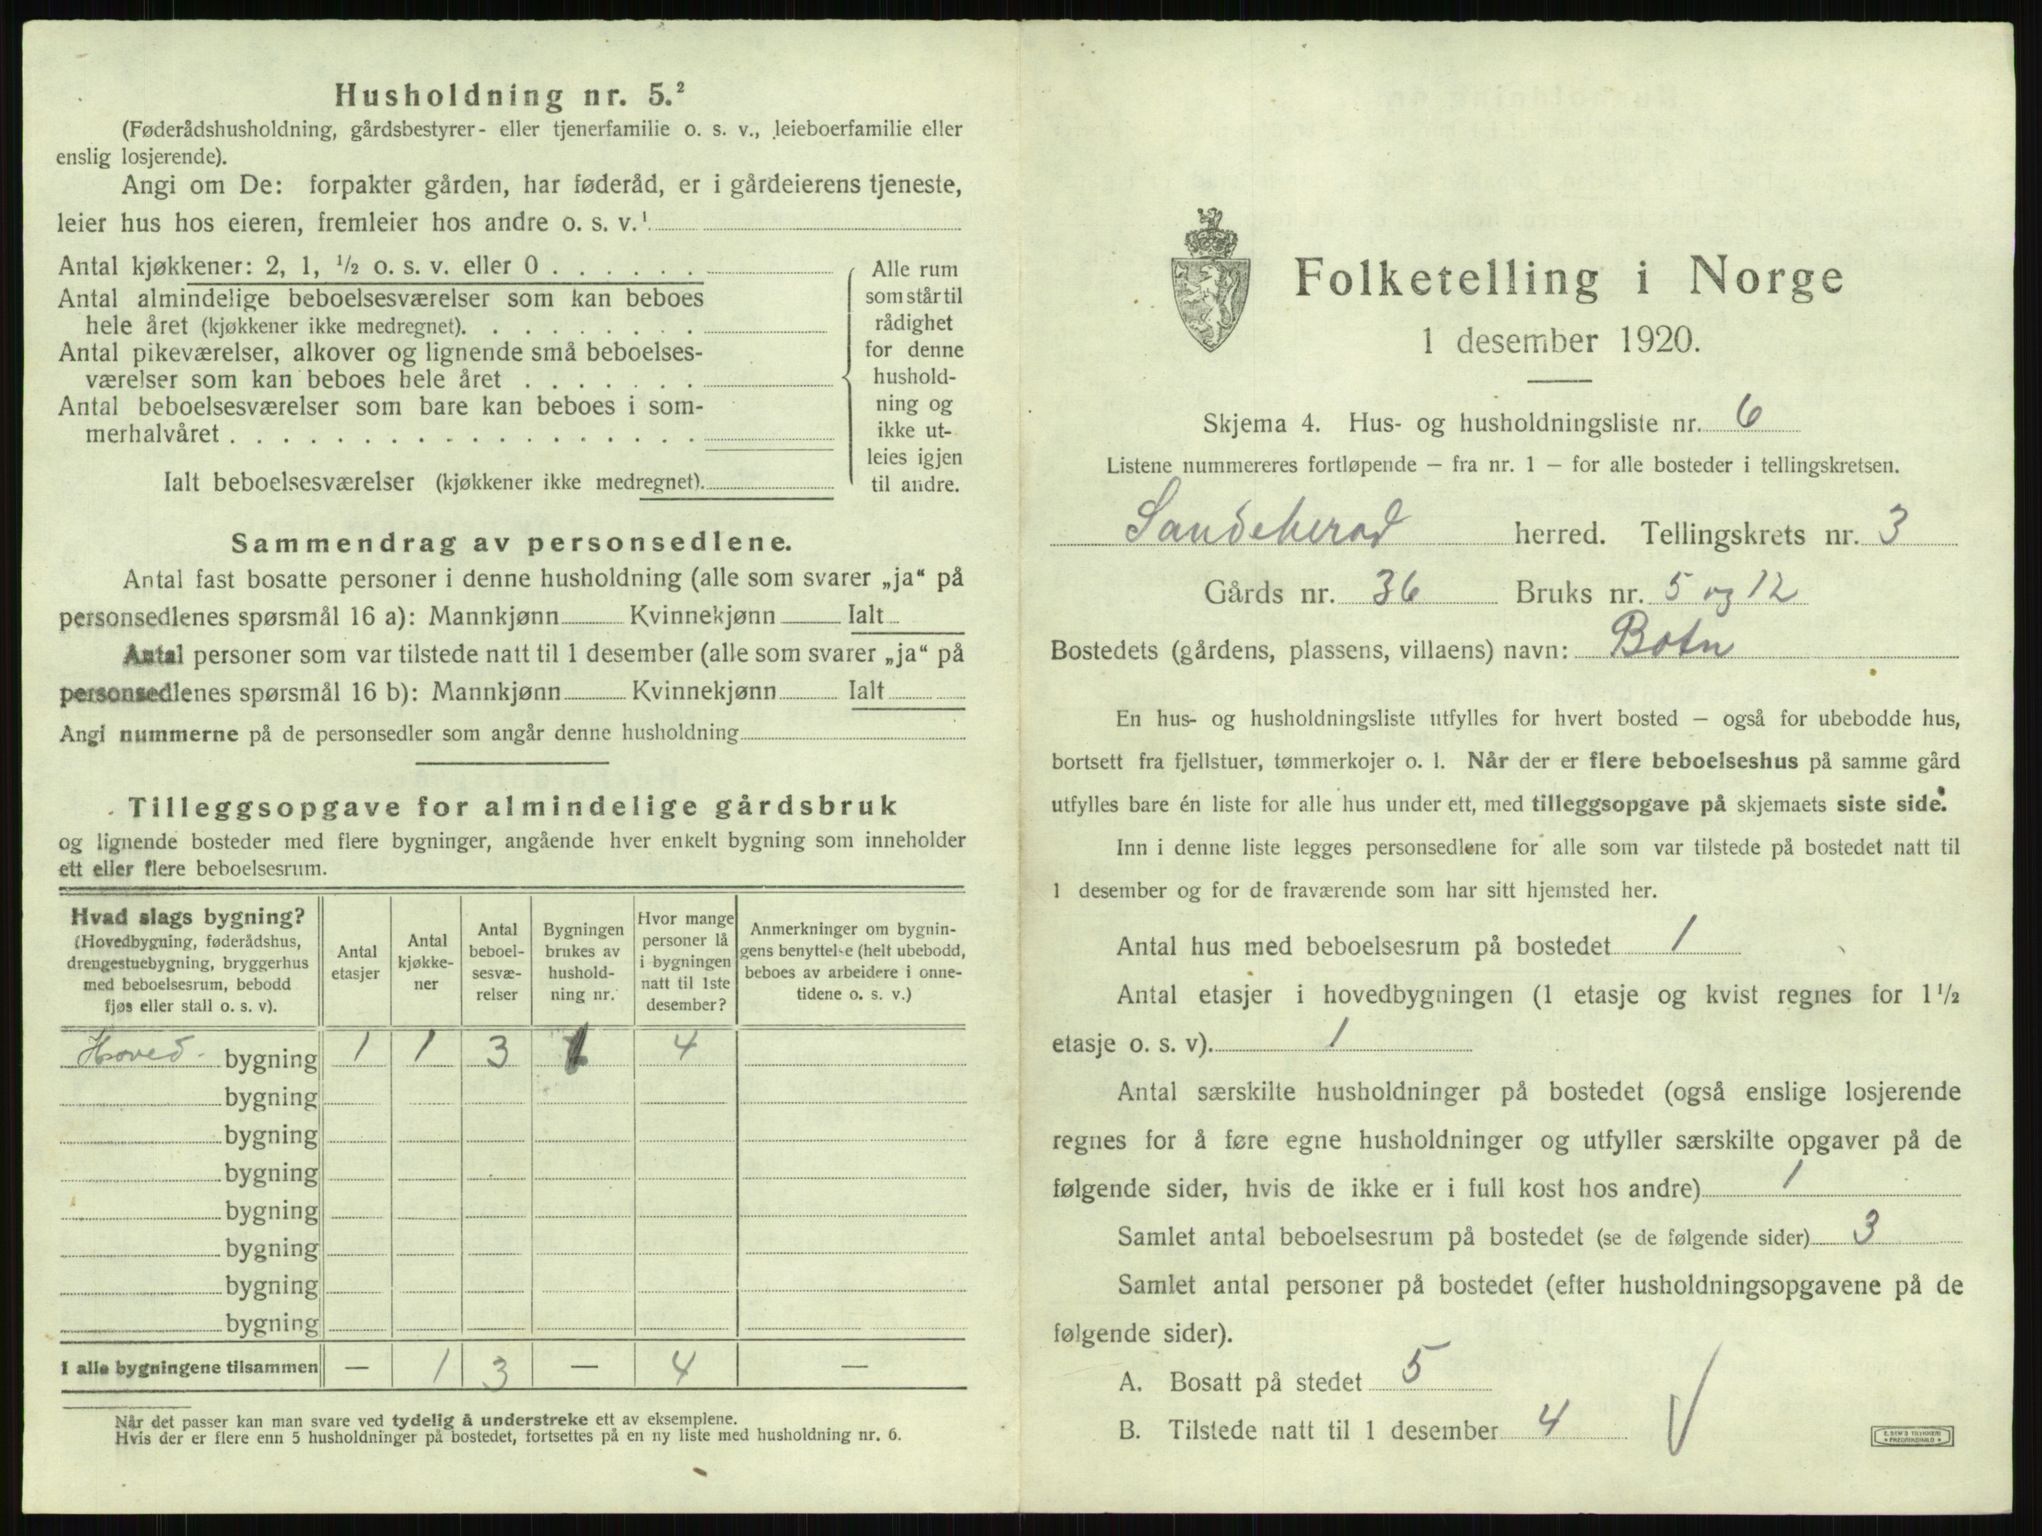 Husholdning nr. 5.²
(Føderådshusholdning, gårdsbestyrer- eller tjenerfamilie o. s. v., leieboerfamilie eller
enslig losjerende).
Angi om De: forpakter gården, har føderåd, er i gårdeierens tjeneste,
leier hus hos eieren, fremleier hos andre o. s. v.¹
Antal kjøkkener: 2, 1, ½ o. s. v. eller 0 . . . . . .
Antal almindelige beboelsesværelser som kan beboes
hele året (kjøkkener ikke medregnet). . . . . . . . .
Antal pikeværelser, alkover og lignende små beboelses-
værelser som kan beboes hele året . . . . . . .
Antal beboelsesværelser som bare kan beboes i som-
merhalvåret . . . . . . . . . . . . . . . . . .
Ialt beboelsesværelser (kjøkkener ikke medregnet).
Alle rum
som står til
rådighet
for denne
hushold-
ning og
ikke ut-
leies igjen
til andre.
Sammendrag av personsedlene.
Antal fast bosatte personer i denne husholdning (alle som svarer „ja“ på
personsedlenes spørsmål 16 a): Mannkjønn Kvinnekjønn Ialt
Antal personer som var tilstede natt til 1 desember (alle som svarer „ja“ på
personsedlenes spørsmål 16 b): Mannkjønn Kvinnekjønn Ialt
Angi nummerne på de personsedler som angår denne husholdning
Tilleggsopgave for almindelige gårdsbruk
og lignende bosteder med flere bygninger, angående hver enkelt bygning som inneholder
ett eller flere beboelsesrum.
Hvad slags bygning?
(Hovedbygning, føderådshus,
drengestuebygning, bryggerhus
med beboelsesrum, bebodd
fjøs eller stall o. s. v).
Antal
etasjer
Antal
kjøkke-
ner
Antal
beboel-
sesvæ-
relser
Bygningen
brukes av
hushold-
ning nr.
Hvor mange
personer lå
i bygningen
natt til 1ste
desember?
Anmerkninger om bygnin-
gens benyttelse (helt ubebodd,
beboes av arbeidere i onne-
tidene o. s. v.)
Hoved- bygning 1 1 3 1 4
bygning
bygning
bygning
bygning
bygning
bygning
bygning
I alle bygningene tilsammen — 1 3 — 4 —
Når det passer kan man svare ved tydelig å understreke ett av eksemplene.
Hvis der er flere enn 5 husholdninger på bostedet, fortsettes på en ny liste med husholdning nr. 6.
Folketelling i Norge
1 desember 1920.
Skjema 4. Hus- og husholdningsliste nr. 6
Listene nummereres fortløpende — fra nr. 1 — for alle bosteder i tellingskretsen.
Sandeherad herred. Tellingskrets nr. 3
Gårds nr. 36 Bruks nr. 5 og 12
Bostedets (gårdens, plassens, villaens) navn: Botn
En hus- og husholdningsliste utfylles for hvert bosted — også for ubebodde hus,
bortsett fra fjellstuer, tømmerkojer o. l. Når der er flere beboelseshus på samme gård
utfylles bare én liste for alle hus under ett, med tilleggsopgave på skjemaets siste side.
Inn i denne liste legges personsedlene for alle som var tilstede på bostedet natt til
1 desember og for de fraværende som har sitt hjemsted her.
Antal hus med beboelsesrum på bostedet 1
Antal etasjer i hovedbygningen (1 etasje og kvist regnes for 1½
etasje o. s. v). 1
Antal særskilte husholdninger på bostedet (også enslige losjerende
regnes for å føre egne husholdninger og utfyller særskilte opgaver på de
følgende sider, hvis de ikke er i full kost hos andre) 1
Samlet antal beboelsesrum på bostedet (se de følgende sider) 3
Samlet antal personer på bostedet (efter husholdningsopgavene på de
følgende sider).
A. Bosatt på stedet 5
B. Tilstede natt til 1 desember 4